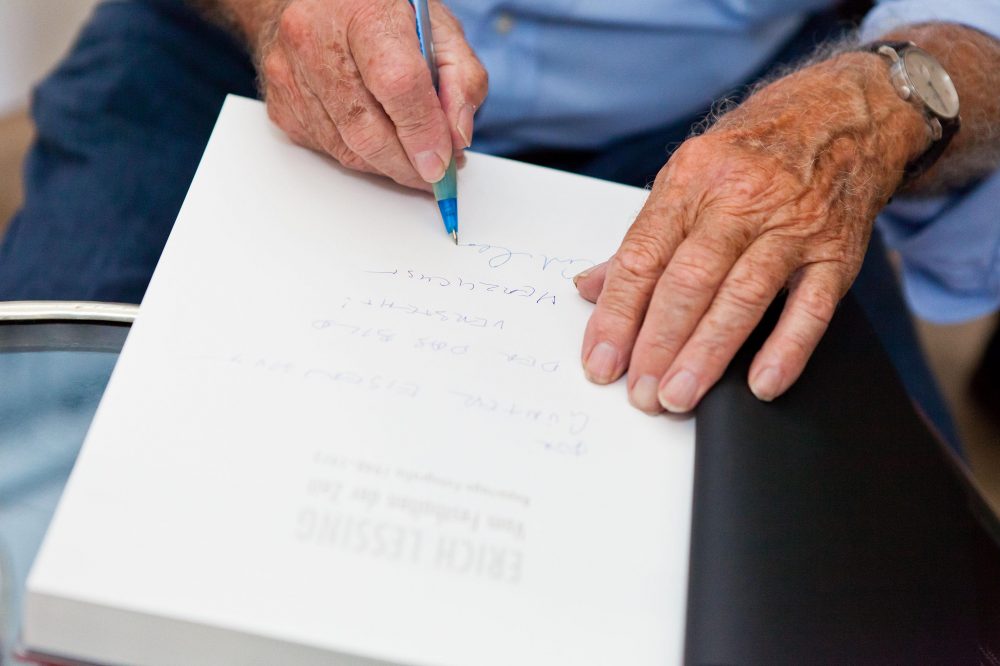 ERICH LESSING
Vom Festhalten der Zeit
Reportage-Fotografie 1948–1973
FÜR
GÜNTER EISENHUT
DER DAS BILD
VERSTEHT!
HERZLICHST